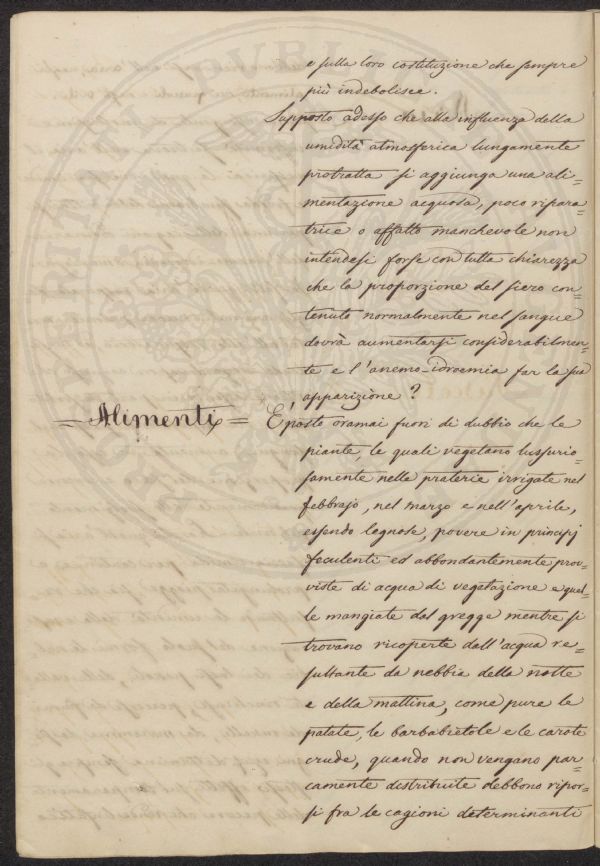 e sulla loro costituzione che sempre
più indebolisce.
Supposto adesso che alla influenza della
umidità atmosferica lungamente
protratta si aggiunga una ali=
mentazione acquosa, poco ripara=
trice o affatto manchevole non
intendesi forse con tutta chiarezza
che la proporzione del siero con=
tenuto normalmente nel sangue
dovrà aumentarsi considerabilmen=
te e l'anemo-idroemia far la sua
apparizione?
= Alimenti =
E' posto oramai fuori di dubbio che le
piante, le quali vegetano lussurio=
samente nelle praterie irrigate nel
febbrajo, nel marzo e nell'aprile,
essendo legnose, povere in principj
feculenti ed abbondantemente prov=
viste di acqua di vegetazione e quel=
le mangiate dal gregge mentre si
trovano ricoperte dall'acqua re=
sultante da nebbia della notte
e della mattina, come pure le
patate, le barbabietole e le carote
crude, quando non vengano par=
camente distribuite debbono ripor=
si fra le cagioni determinanti